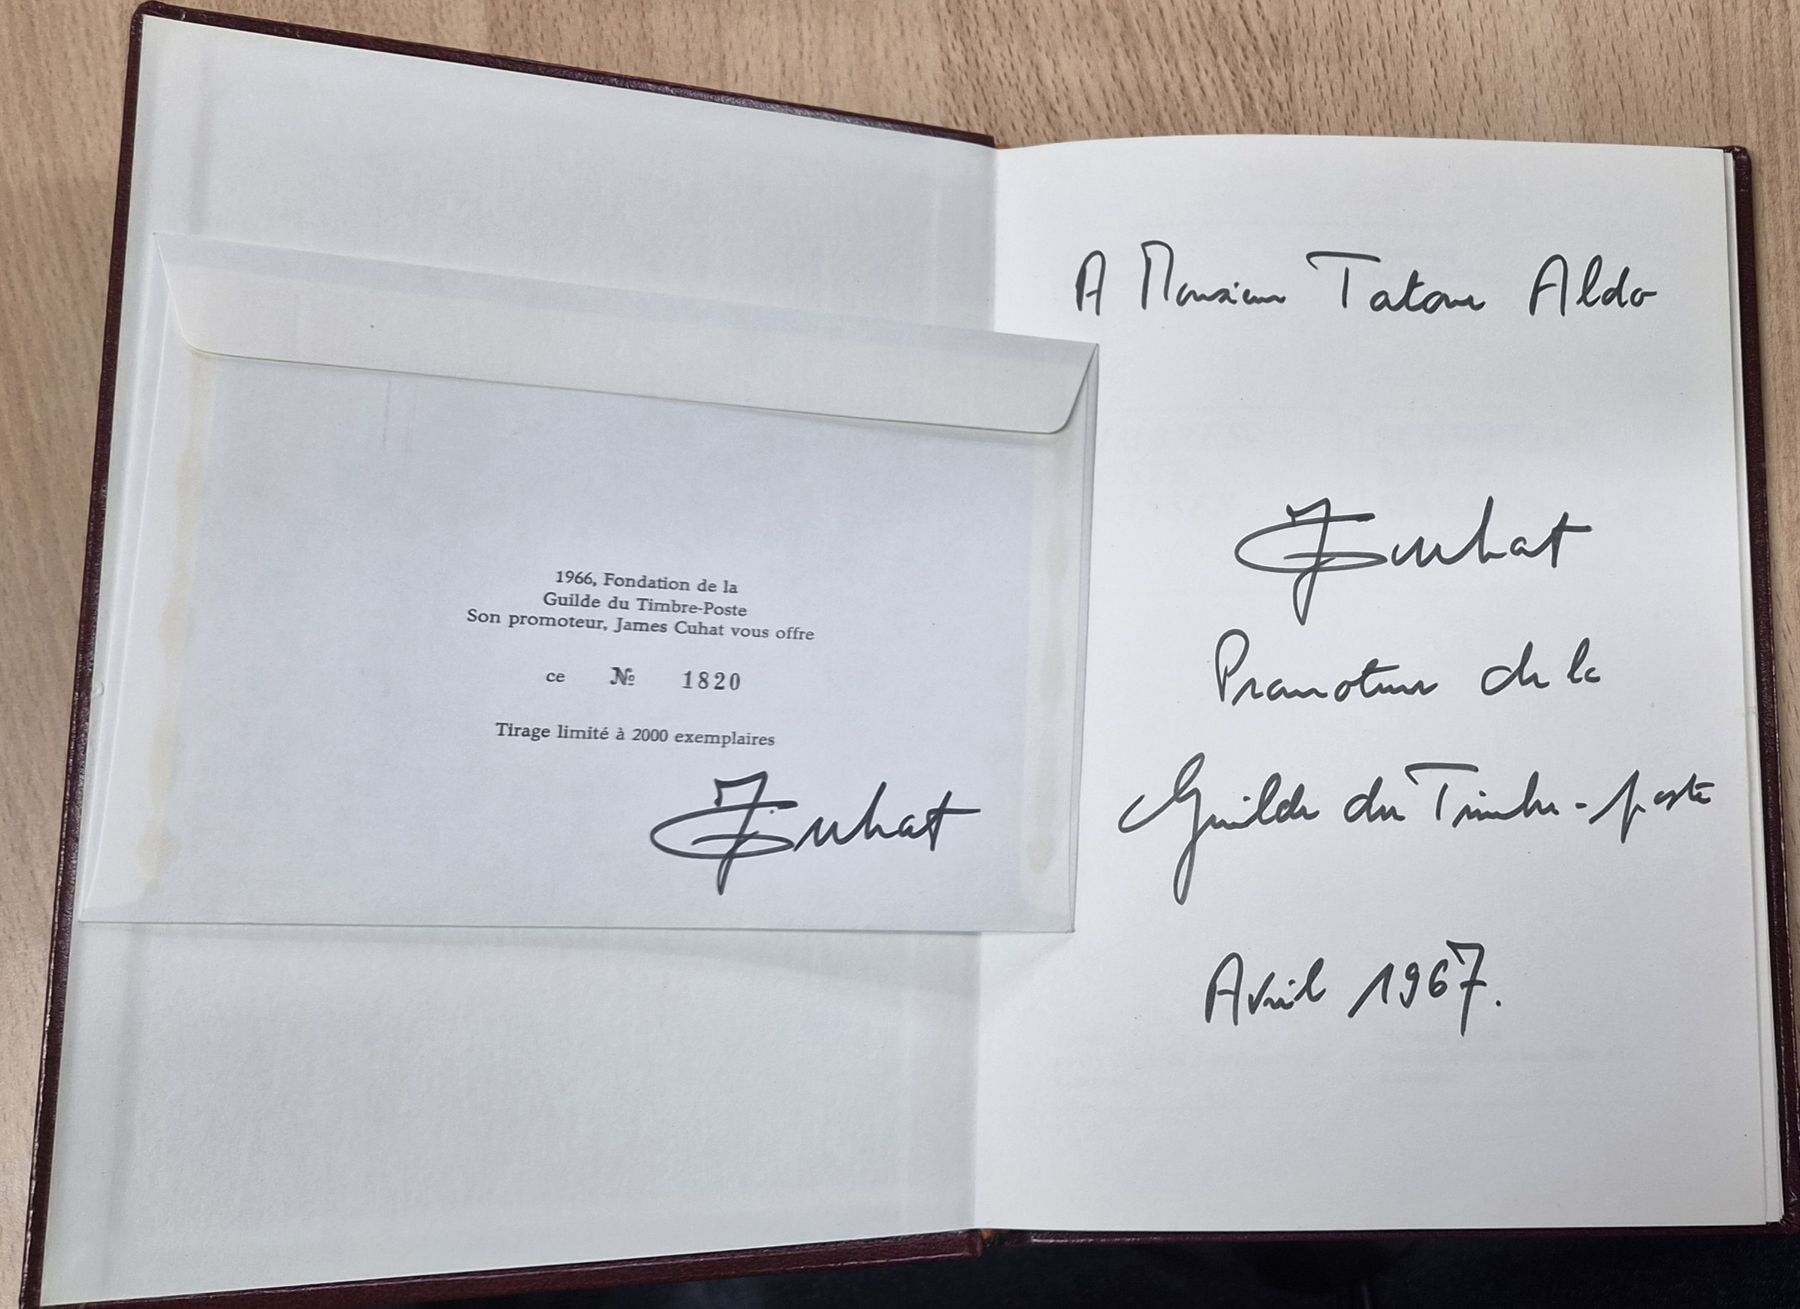 1966, Fondation de la
Guilde du Timbre-Poste
Son promoteur, James Cuhat vous offre
ce № 1820
Tirage limité à 2000 exemplaires
J Cuhat
A Monsieur Tatour Aldo
J Cuhat
Promoteur de la
Guilde du Timbre-poste
Avril 1967.